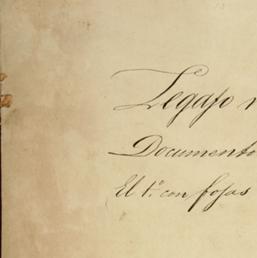 Legajo n
Documento
El 1.º con fojas